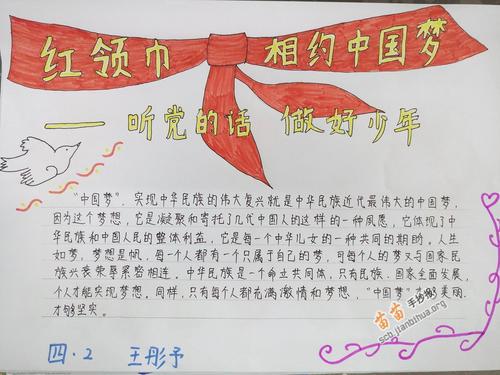 红领巾 相约中国梦
—— 听党的话 做好少年
"中国梦",实现中华民族的伟大复兴就是中华民族近代最伟大的中国梦,
因为这个梦想,它是凝聚和寄托了几代中国人的这样的一种夙愿,它体现了中
华民族和中国人民的整体利益,它是每一个中华儿女的一种共同的期盼。人生
如梦,梦想是帆,每一个人都有一个只属于自己的梦,可每个人的梦又与国家民
族兴衰荣辱紧密相连。中华民族是一个命立共同体,只有民族、国家全面发展,
个人才能实现梦想。同样,只有每个人都充满激情和梦想,"中国梦"才够美丽,
才够坚实。
苗苗手抄报
scb.jianbihua.org
四.2 王彤予